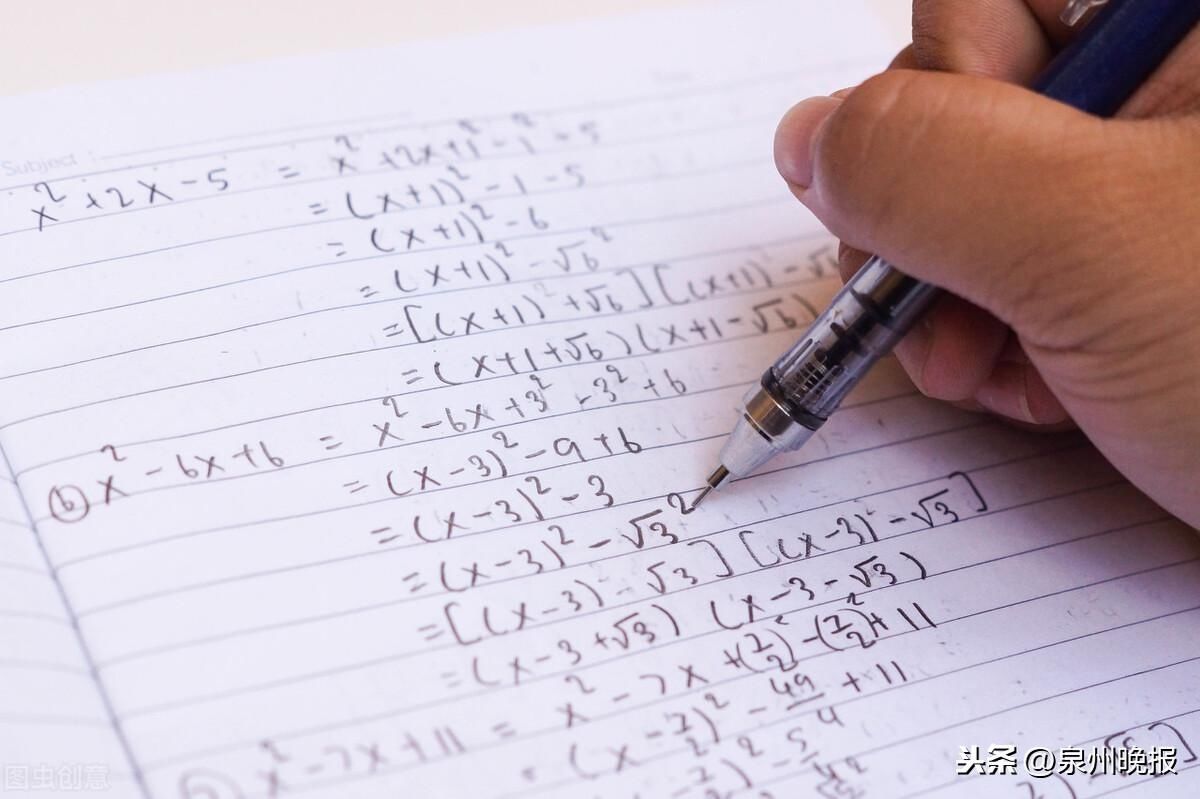 Subject :
x² + 2x - 5 = x² + 2x + 1² - 1² - 5
= (x+1)² - 1 - 5
= (x+1)² - 6
= (x+1)² - √6²
= [(x+1)² + √6][(x+1) - √6
= (x+1+√6)(x+1-√6)
ⓑ x² - 6x + 6 = x² - 6x + 3² - 3² + 6
= (x-3)² - 9 + 6
= (x-3)² - 3
= (x-3)² - √3²
= [(x-3) - √3][(x-3) - √3]
= (x-3+√3) (x-3-√3)
x² - 7x + 11 = x² - 7x + (7/2)² - (7/2)² + 11
= (x - 7/2)² - 49/4 + 11
图虫创意
头条 @泉州晚报